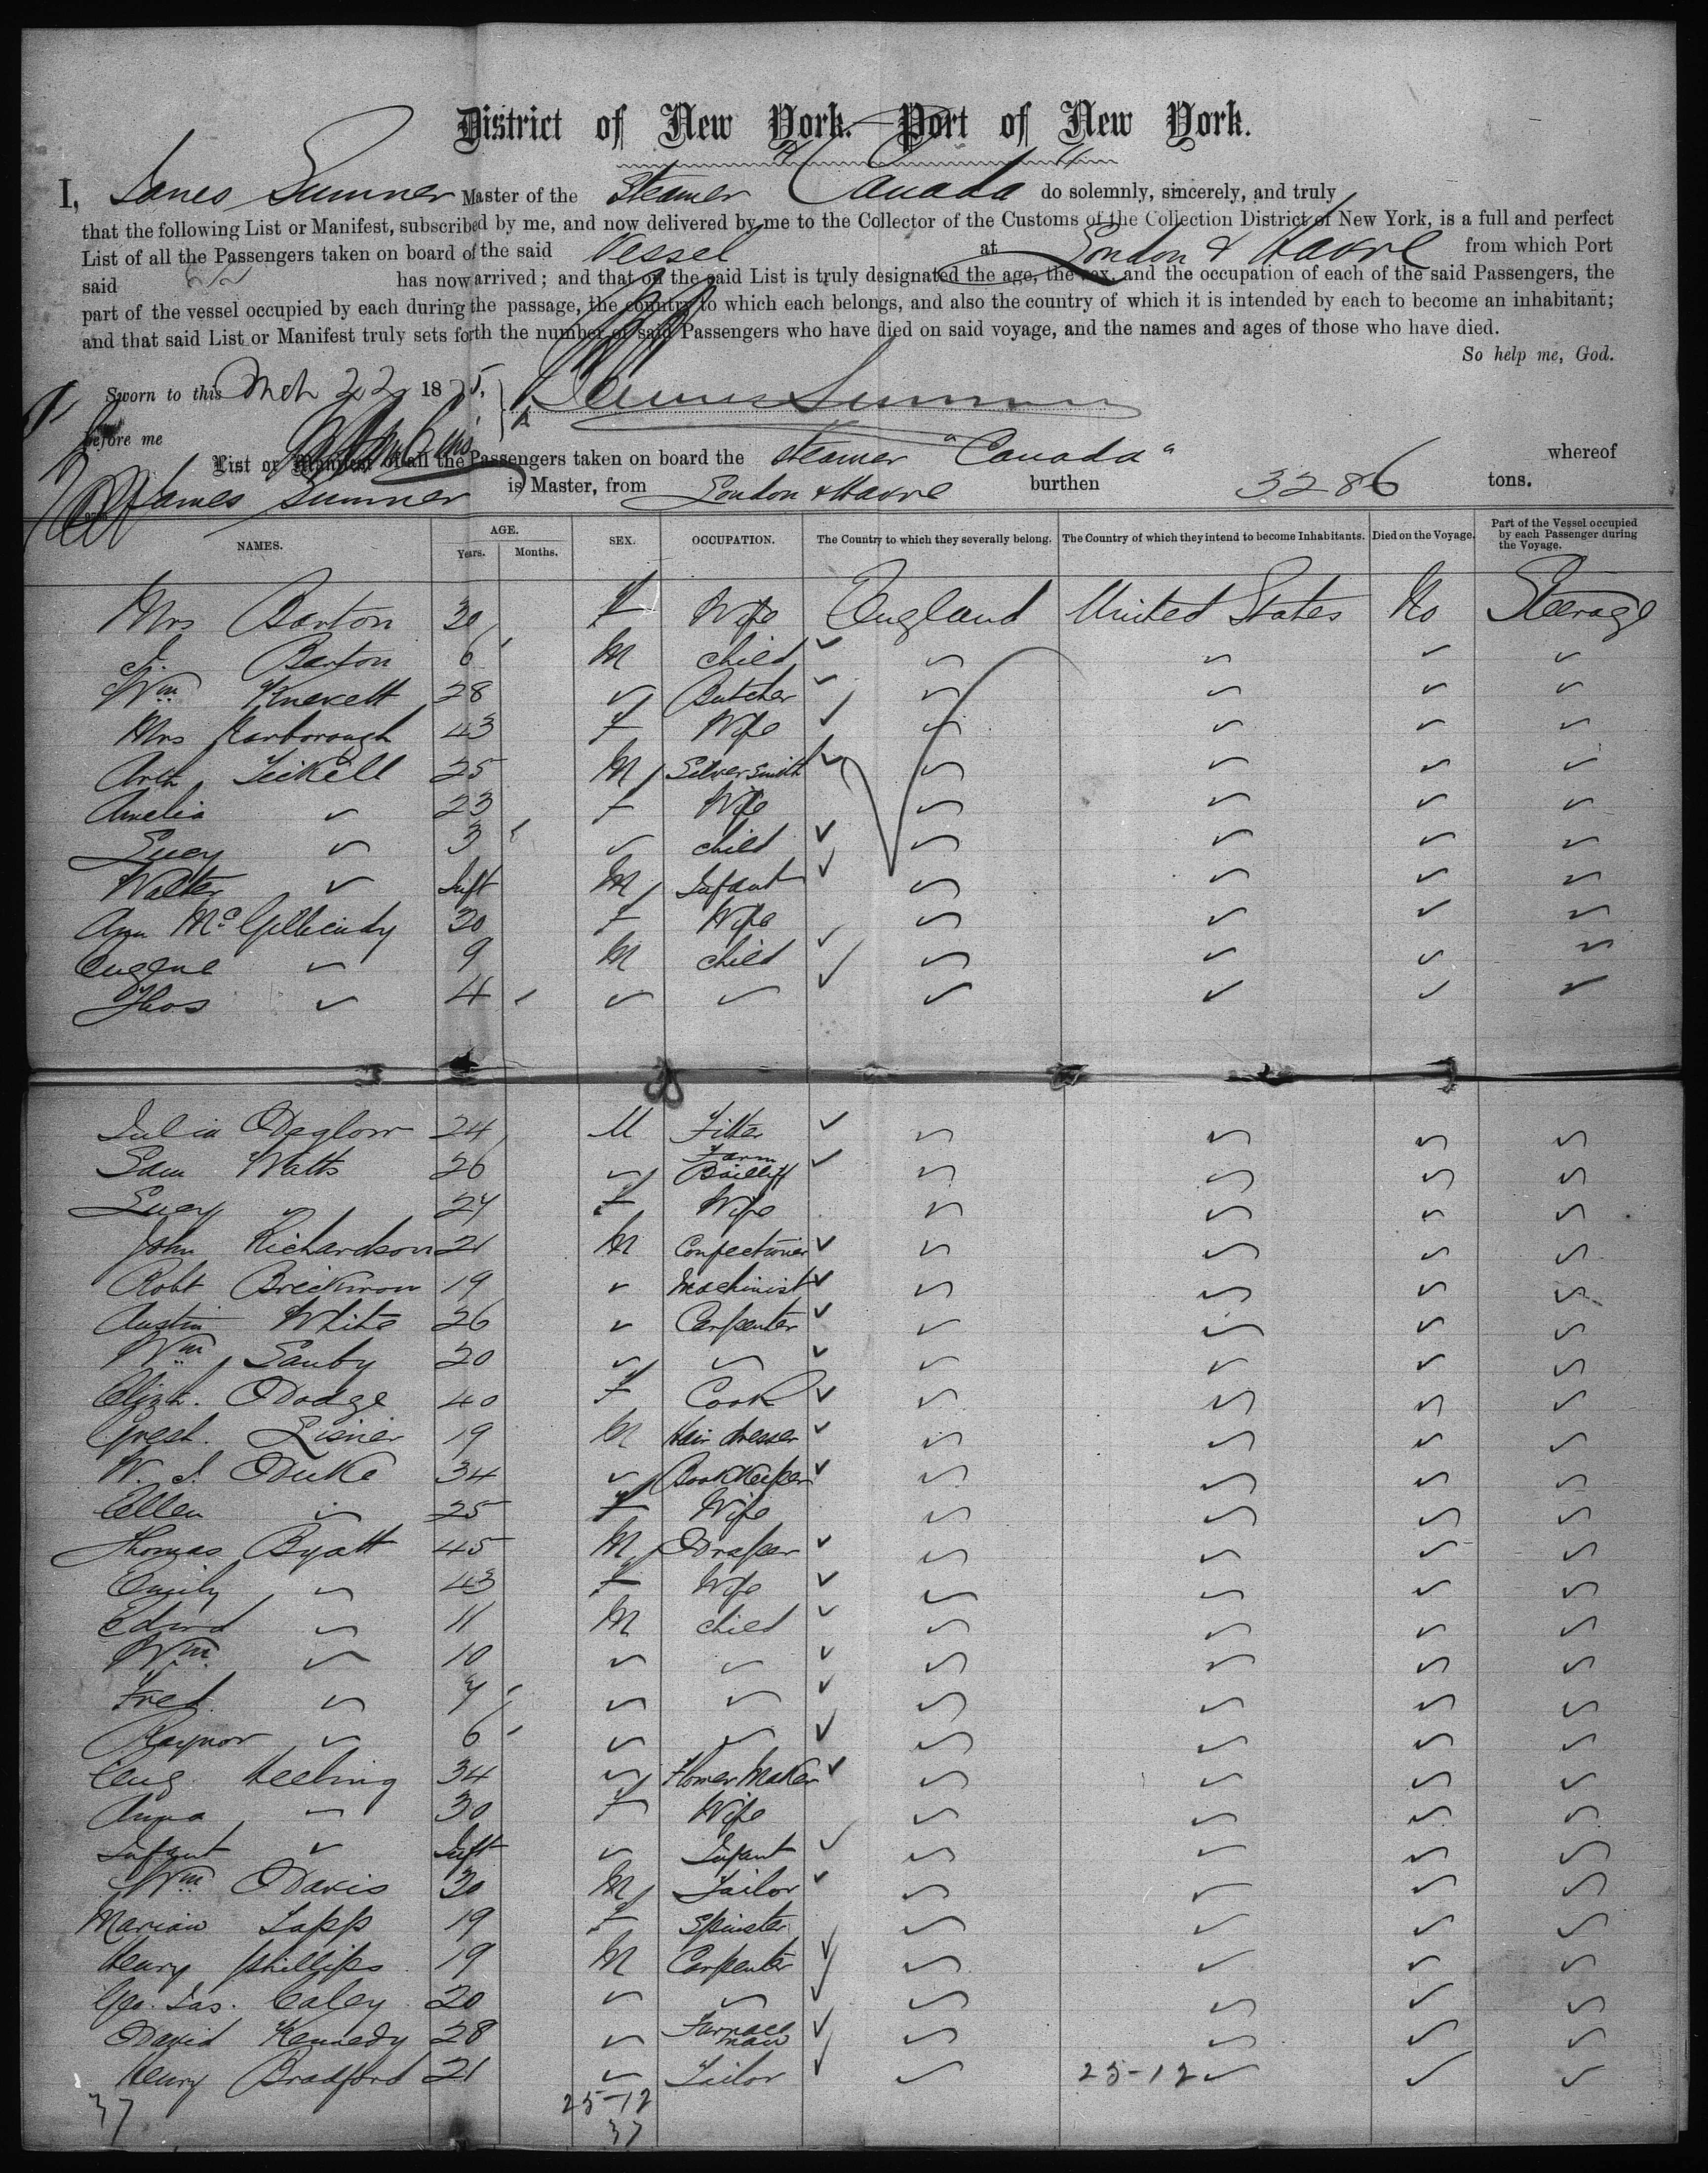 District of New York. Port of New York.
I, James Sumner Master of the Steamer "Canada" do solemnly, sincerely, and truly
that the following List or Manifest, subscribed by me, and now delivered by me to the Collector of the Customs of the Collection District of New York, is a full and perfect
List of all the Passengers taken on board of the said Vessel at London & Havre from which Port
said has now arrived; and that on the said List is truly designated the age, the sex, and the occupation of each of the said Passengers, the
part of the vessel occupied by each during the passage, the country to which each belongs, and also the country of which it is intended by each to become an inhabitant;
and that said List or Manifest truly sets forth the number of said Passengers who have died on said voyage, and the names and ages of those who have died.
So help me, God.
Sworn to this Mch 22 1875, James Sumner
before me
List or Manifest of all the Passengers taken on board the Steamer "Canada" whereof
James Sumner is Master, from London & Havre burthen 3286 tons.
NAMES. AGE. Years. Months. SEX. OCCUPATION. The Country to which they severally belong. The Country of which they intend to become Inhabitants. Died on the Voyage. Part of the Vessel occupied by each Passenger during the Voyage.
Mrs Barton 30 F Wife England United States No Steerage
J. Barton 6 M child
Wm Knevett 28 Butcher
Mrs Yarborough 43 F Wife
Arth Tickell 25 M Silver Smith
Amelia 23 F Wife
Lucy 3 child
Walter Inft M Infant
Ann 30 F Wife
Eugene 9 M child
Thos 4
Julia 24 M Fitter
Sam Watts 26 Farm Bailiff
Lucy 24 F Wife
John Richardson 21 M Confectioner
Robt 19 Machinist
Austin White 26 Carpenter
Wm Sanby 20
Elizh. Dodge 40 F Cook
19 M Hair dresser
W. J. Duke 34 Book Keeper
Ellen 25 F Wife
Thomas Byatt 45 M Draper
Emily 43 F Wife
Edwd 11 M child
Wm 10
Fred 7
Raynor 6
Eug Keebing 34 Flower Maker
Anna 30 F Wife
Infant Inft Infant
Wm Davis 30 M Tailor
Marian Tapp 19 F Spinster
Henry Phillips 19 M Carpenter
Geo. Jas. Caley 20
David Kennedy 28 Furnace man
Henry Bradford 21 Tailor 25-12
37 25-12
37